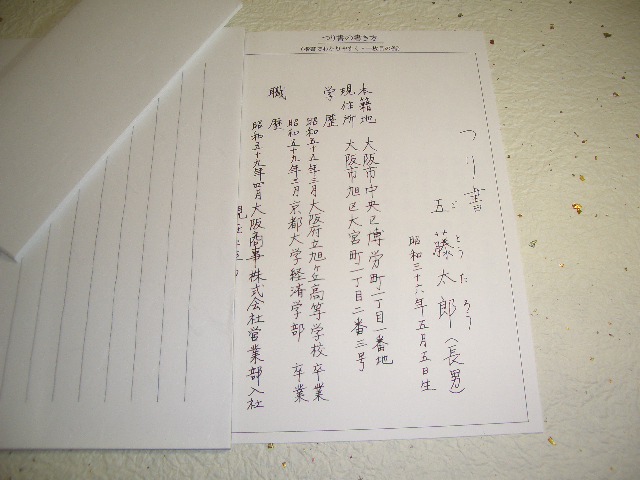 つり書の書き方
つり書
ごとうたろう
五藤太郎(長男)
昭和三十六年五月五日生
本籍地 大阪市中央区博労町一丁目一番地
現住所 大阪市旭区大宮町一丁目二番三号
学歴
昭和五十五年三月大阪府立旭ヶ丘高等学校卒業
昭和五十九年三月京都大学経済学部 卒業
職歴
昭和五十九年四月大阪商事株式会社営業部入社